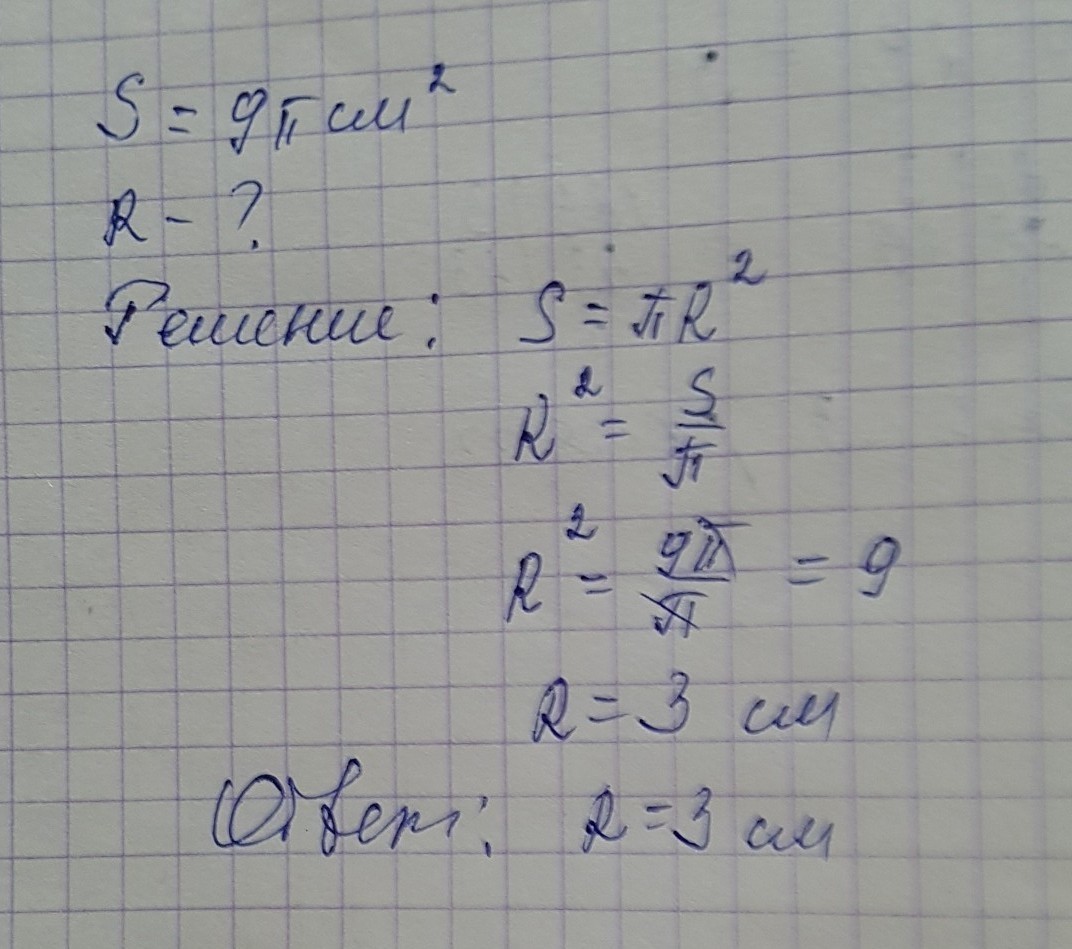 S = 9π см²
R - ?
Решение: S = πR²
R² = S/π
R² = 9π/π = 9
R = 3 см
Ответ: R = 3 см